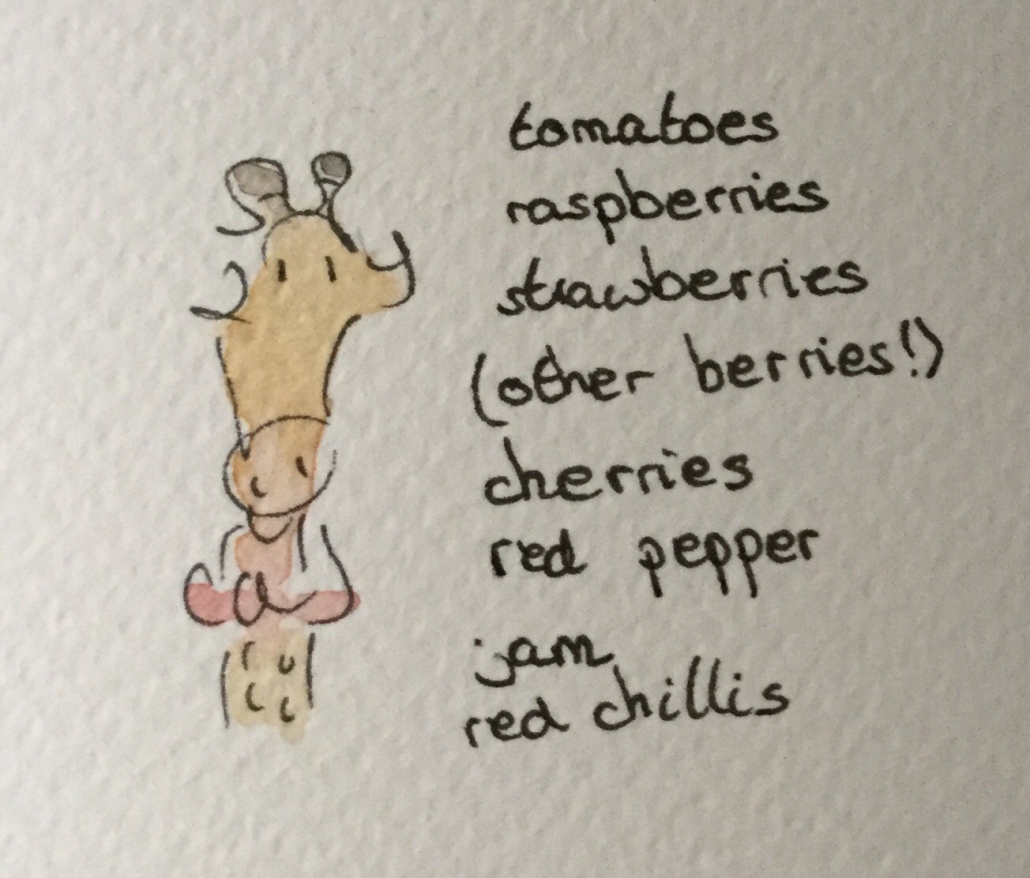 tomatoes
raspberries
strawberries
(other berries!)
cherries
red pepper
jam
red chillis